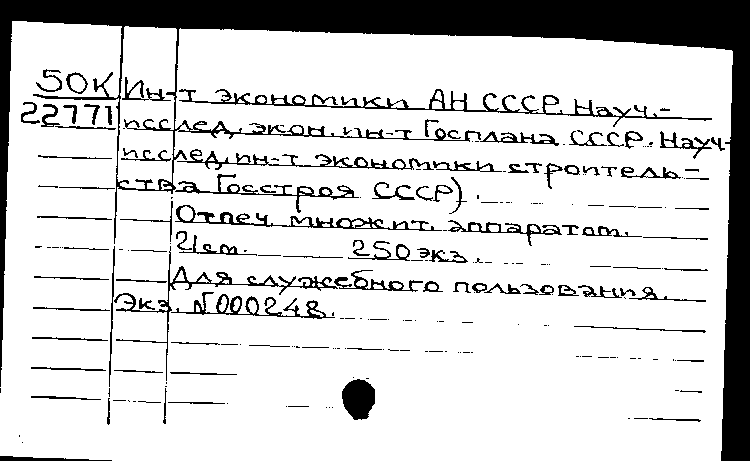 50К Ин-т экономики АН СССР. Науч.-
22771 исслед. экон. ин-т Госплана СССР. Науч-
исслед. ин-т экономики строитель-
ства Госстроя СССР).
Отпеч. множит. аппаратом.
21 см. 250 экз.
Для служебного пользования.
Экз. №000248.